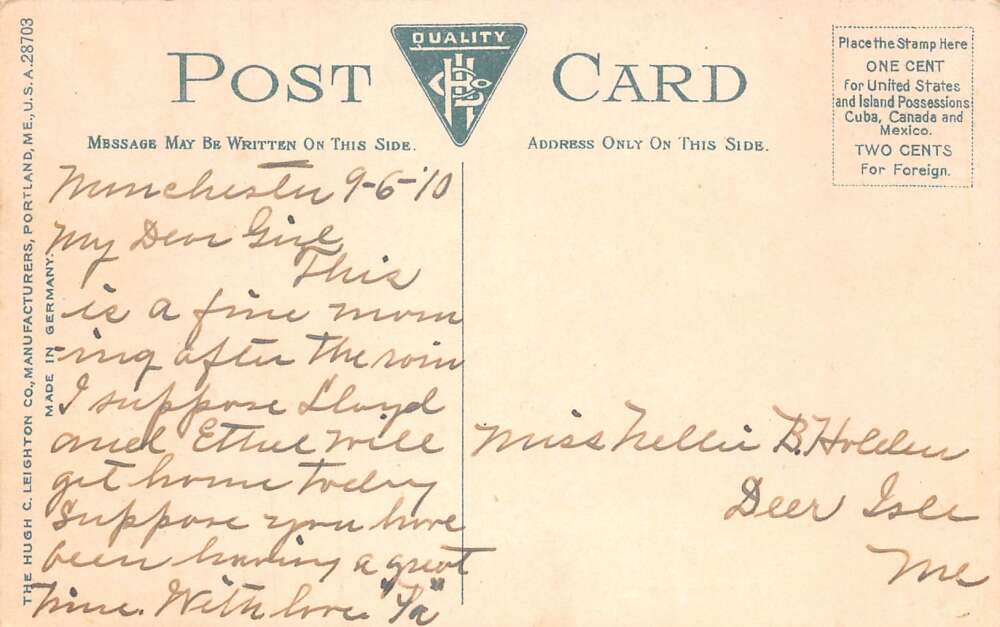 THE HUGH C. LEIGHTON CO., MANUFACTURERS, PORTLAND, ME., U.S.A. 28703
MADE IN GERMANY.
POST CARD
QUALITY
MESSAGE MAY BE WRITTEN ON THIS SIDE.
ADDRESS ONLY ON THIS SIDE.
Place the Stamp Here
ONE CENT
for United States
and Island Possessions
Cuba, Canada and
Mexico.
TWO CENTS
For Foreign.
Manchester 9-6-'10
My Dear Girl
This
is a fine morn
-ing after the rain
I suppose Lloyd
and Ethel will
get home today
Suppose you have
been having a great
time. With love "Pa"
Miss Nellie B. Holden
Deer Isle
Me